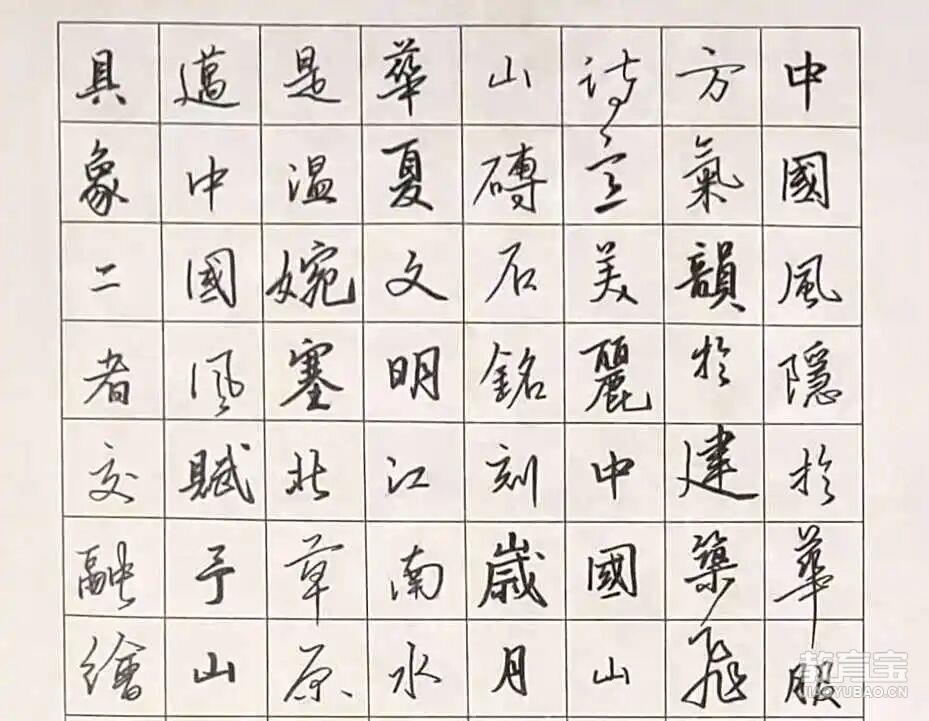 中國風隱於華服
方氣韻於建築飛
诗意美麗中國山
山磚石銘刻歲月
華夏文明江南水
是温婉塞北草原
邁中國風賦予山
具象二者交融繪
教育宝
JIAOYUBAO.CN